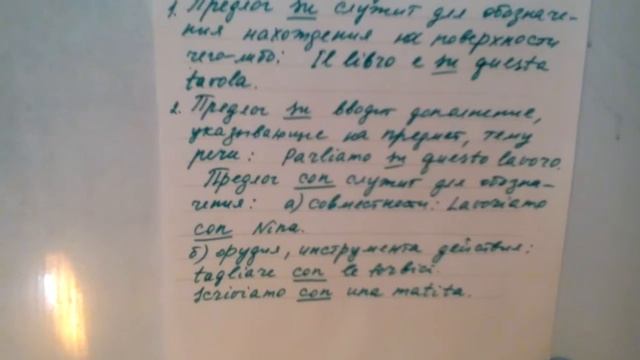 1. Предлог su служит для обозначе-
ния нахождения на поверхности
чего-либо: Il libro e su questa
tavola.
2. Предлог su вводит дополнение,
указывающие на предмет, тему
речи: Parliamo su questo lavoro.
Предлог con служит для обозна-
чения: а) совместности: Lavoriamo
con Nina.
б) орудия, инструмента действия:
tagliare con le forbici.
Scriviamo con una matita.